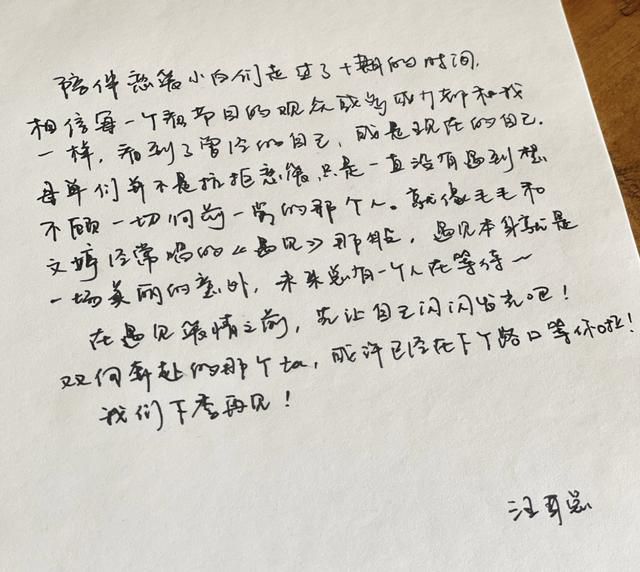 陪伴恋爱小白们走过了十期的时间，
相信每一个看节目的观众或多或少都和我
一样，看到了曾经的自己，或是现在的自己。
母单们并不是抗拒恋爱，只是一直没有遇到想
不顾一切向前一步的那个人。就像毛毛和
文婷经常唱的《遇见》那样，遇见本身就是
一场美丽的意外，未来总有一个人在等待～
在遇见爱情之前，先让自己闪闪发光吧！
双向奔赴的那个ta，或许已经在下个路口等你啦！
我们下季再见！